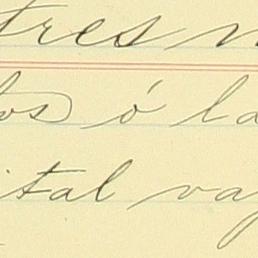 tres
tos ó la
ital va